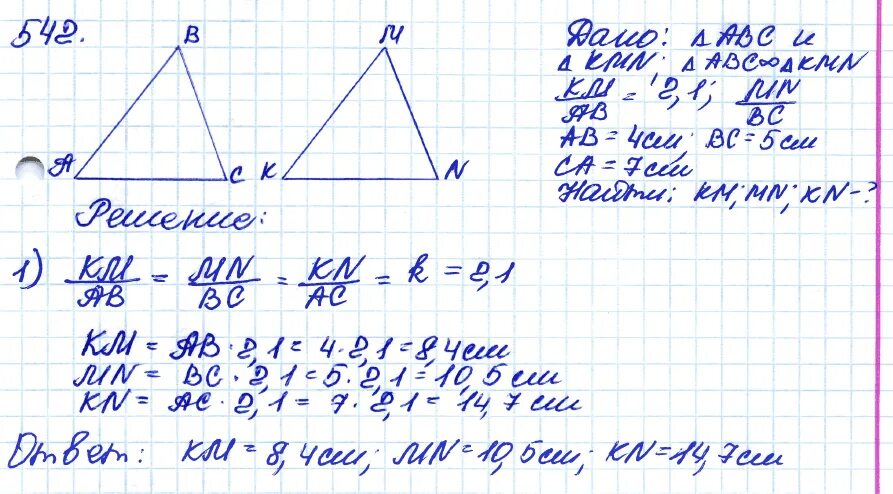 542.
B
A
C
M
K
N
Дано: △ ABC и
△ KMN; △ ABC∞△KMN
KM/AB = 2,1; MN/BC
AB = 4см; BC = 5см
CA = 7см
Найти: KM; MN; KN-?
Решение:
1) KM/AB = MN/BC = KN/AC = k = 2,1
KM = AB · 2,1 = 4 · 2,1 = 8,4см
MN = BC · 2,1 = 5 · 2,1 = 10,5 см
KN = AC · 2,1 = 7 · 2,1 = 14,7 см
Ответ: KM = 8,4см; MN = 10,5см; KN = 14,7см